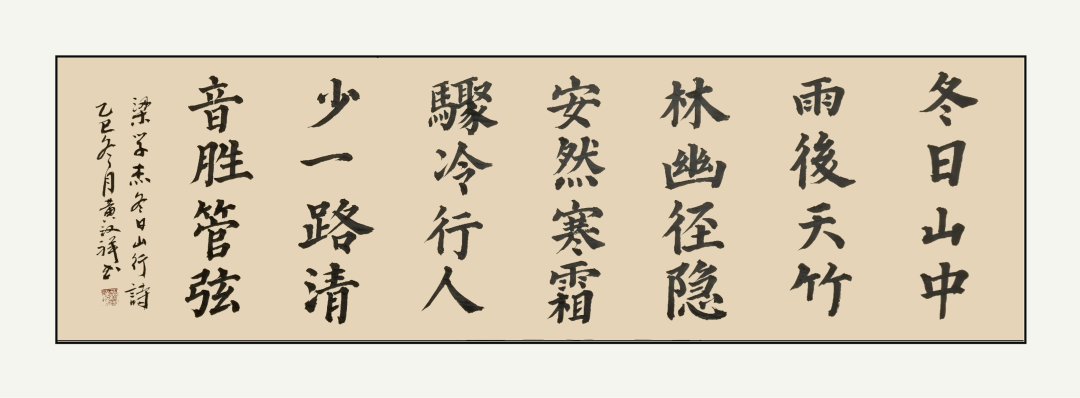 冬日山中
雨後天竹
林幽径隐
安然寒霜
驟冷行人
少一路清
音胜管弦
梁学杰冬日山行詩
乙巳冬月黄汉祥书